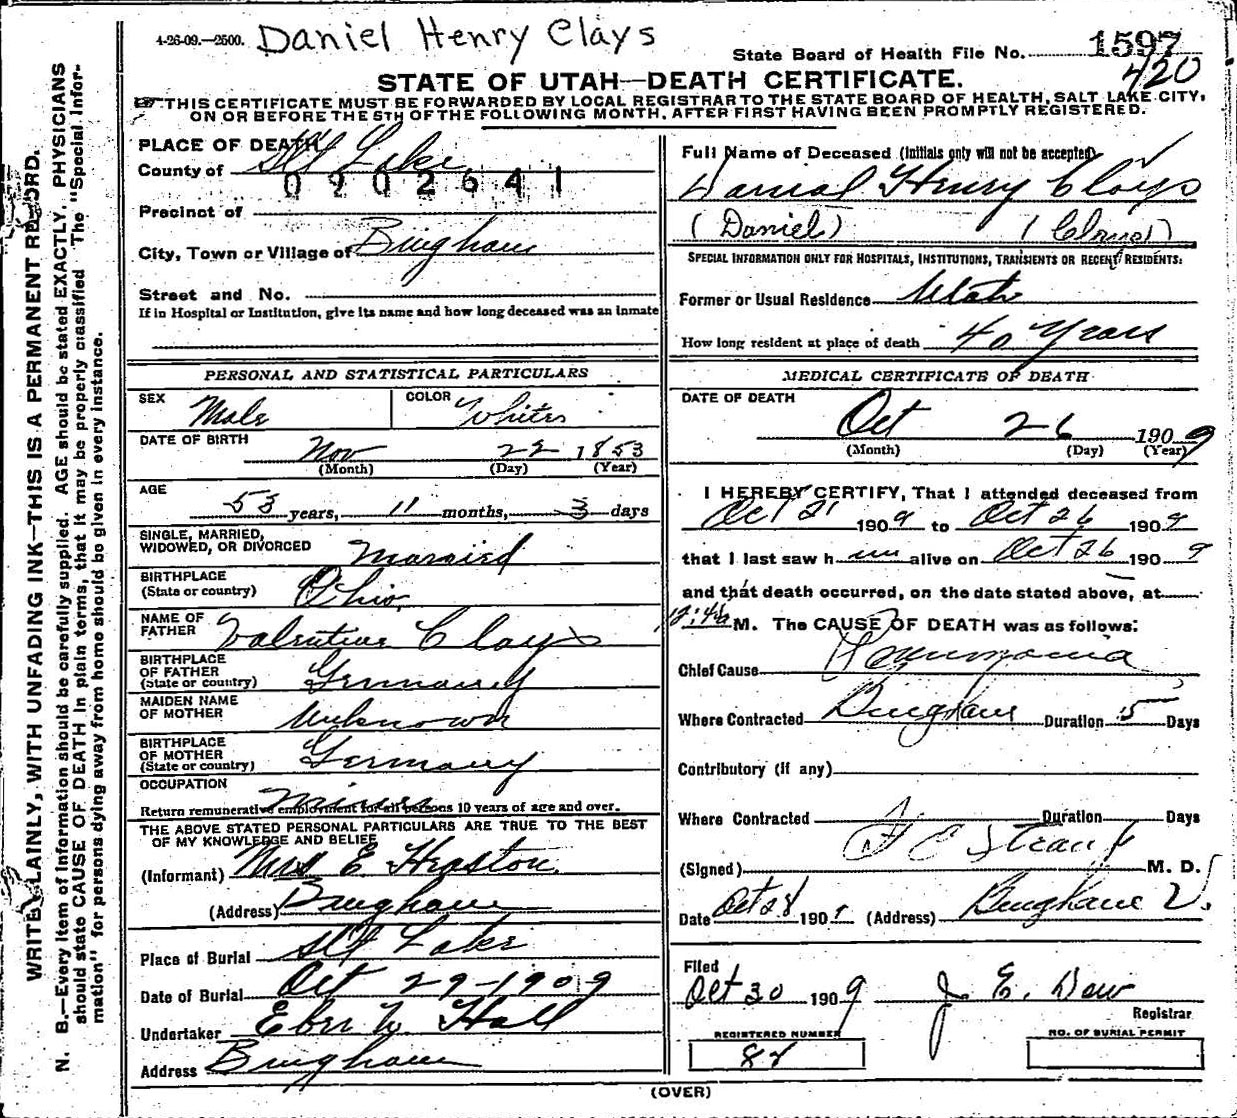 4-26-09.—2500. Daniel Henry Clays
State Board of Health File No. 1597
420
STATE OF UTAH—DEATH CERTIFICATE.
THIS CERTIFICATE MUST BE FORWARDED BY LOCAL REGISTRAR TO THE STATE BOARD OF HEALTH, SALT LAKE CITY,
ON OR BEFORE THE 5TH OF THE FOLLOWING MONTH, AFTER FIRST HAVING BEEN PROMPTLY REGISTERED.
WRITE PLAINLY, WITH UNFADING INK—THIS IS A PERMANENT RECORD.
N. B.—Every item of information should be carefully supplied. AGE should be stated EXACTLY. PHYSICIANS
should state CAUSE OF DEATH in plain terms, that it may be properly classified. The "Special Infor-
mation" for persons dying away from home should be given in every instance.
PLACE OF DEATH
County of Slt Lake
0902641
Precinct of
City, Town or Village of Bingham
Street and No.
If in Hospital or Institution, give its name and how long deceased was an inmate
PERSONAL AND STATISTICAL PARTICULARS
SEX Male COLOR White
DATE OF BIRTH Nov 22 1853
(Month) (Day) (Year)
AGE
55 years, 11 months, 3 days
SINGLE, MARRIED,
WIDOWED, OR DIVORCED Married
BIRTHPLACE
(State or country) Ohio
NAME OF
FATHER Valentine Clays
BIRTHPLACE
OF FATHER
(State or country) Germany
MAIDEN NAME
OF MOTHER Unknown
BIRTHPLACE
OF MOTHER
(State or country) Germany
OCCUPATION Miner
Return remunerative employment for all persons 10 years of age and over.
THE ABOVE STATED PERSONAL PARTICULARS ARE TRUE TO THE BEST
OF MY KNOWLEDGE AND BELIEF
(Informant) Mrs E Heaston
(Address) Bingham
Place of Burial Slt Lake
Date of Burial Oct 29-1909
Undertaker Eber W. Hall
Address Bingham
Full Name of Deceased (initials only will not be accepted)
Danial Henry Clays
(Daniel) ( )
SPECIAL INFORMATION ONLY FOR HOSPITALS, INSTITUTIONS, TRANSIENTS OR RECENT RESIDENTS:
Former or Usual Residence Utah
How long resident at place of death 40 Years
MEDICAL CERTIFICATE OF DEATH
DATE OF DEATH
Oct 26 1909
(Month) (Day) (Year)
I HEREBY CERTIFY, That I attended deceased from
Oct 21 1909 to Oct 26 1909
that I last saw him alive on Oct 26 1909
and that death occurred, on the date stated above, at
M. The CAUSE OF DEATH was as follows:
Chief Cause Pneumonia
Where Contracted Bingham Duration 5 Days
Contributory (if any)
Where Contracted Duration Days
(Signed) F E Straup M. D.
Date Oct 28 1909 (Address) Bingham U.
Filed
Oct 30 1909 J. E. Dow
Registrar
REGISTERED NUMBER NO. OF BURIAL PERMIT
88
(OVER)